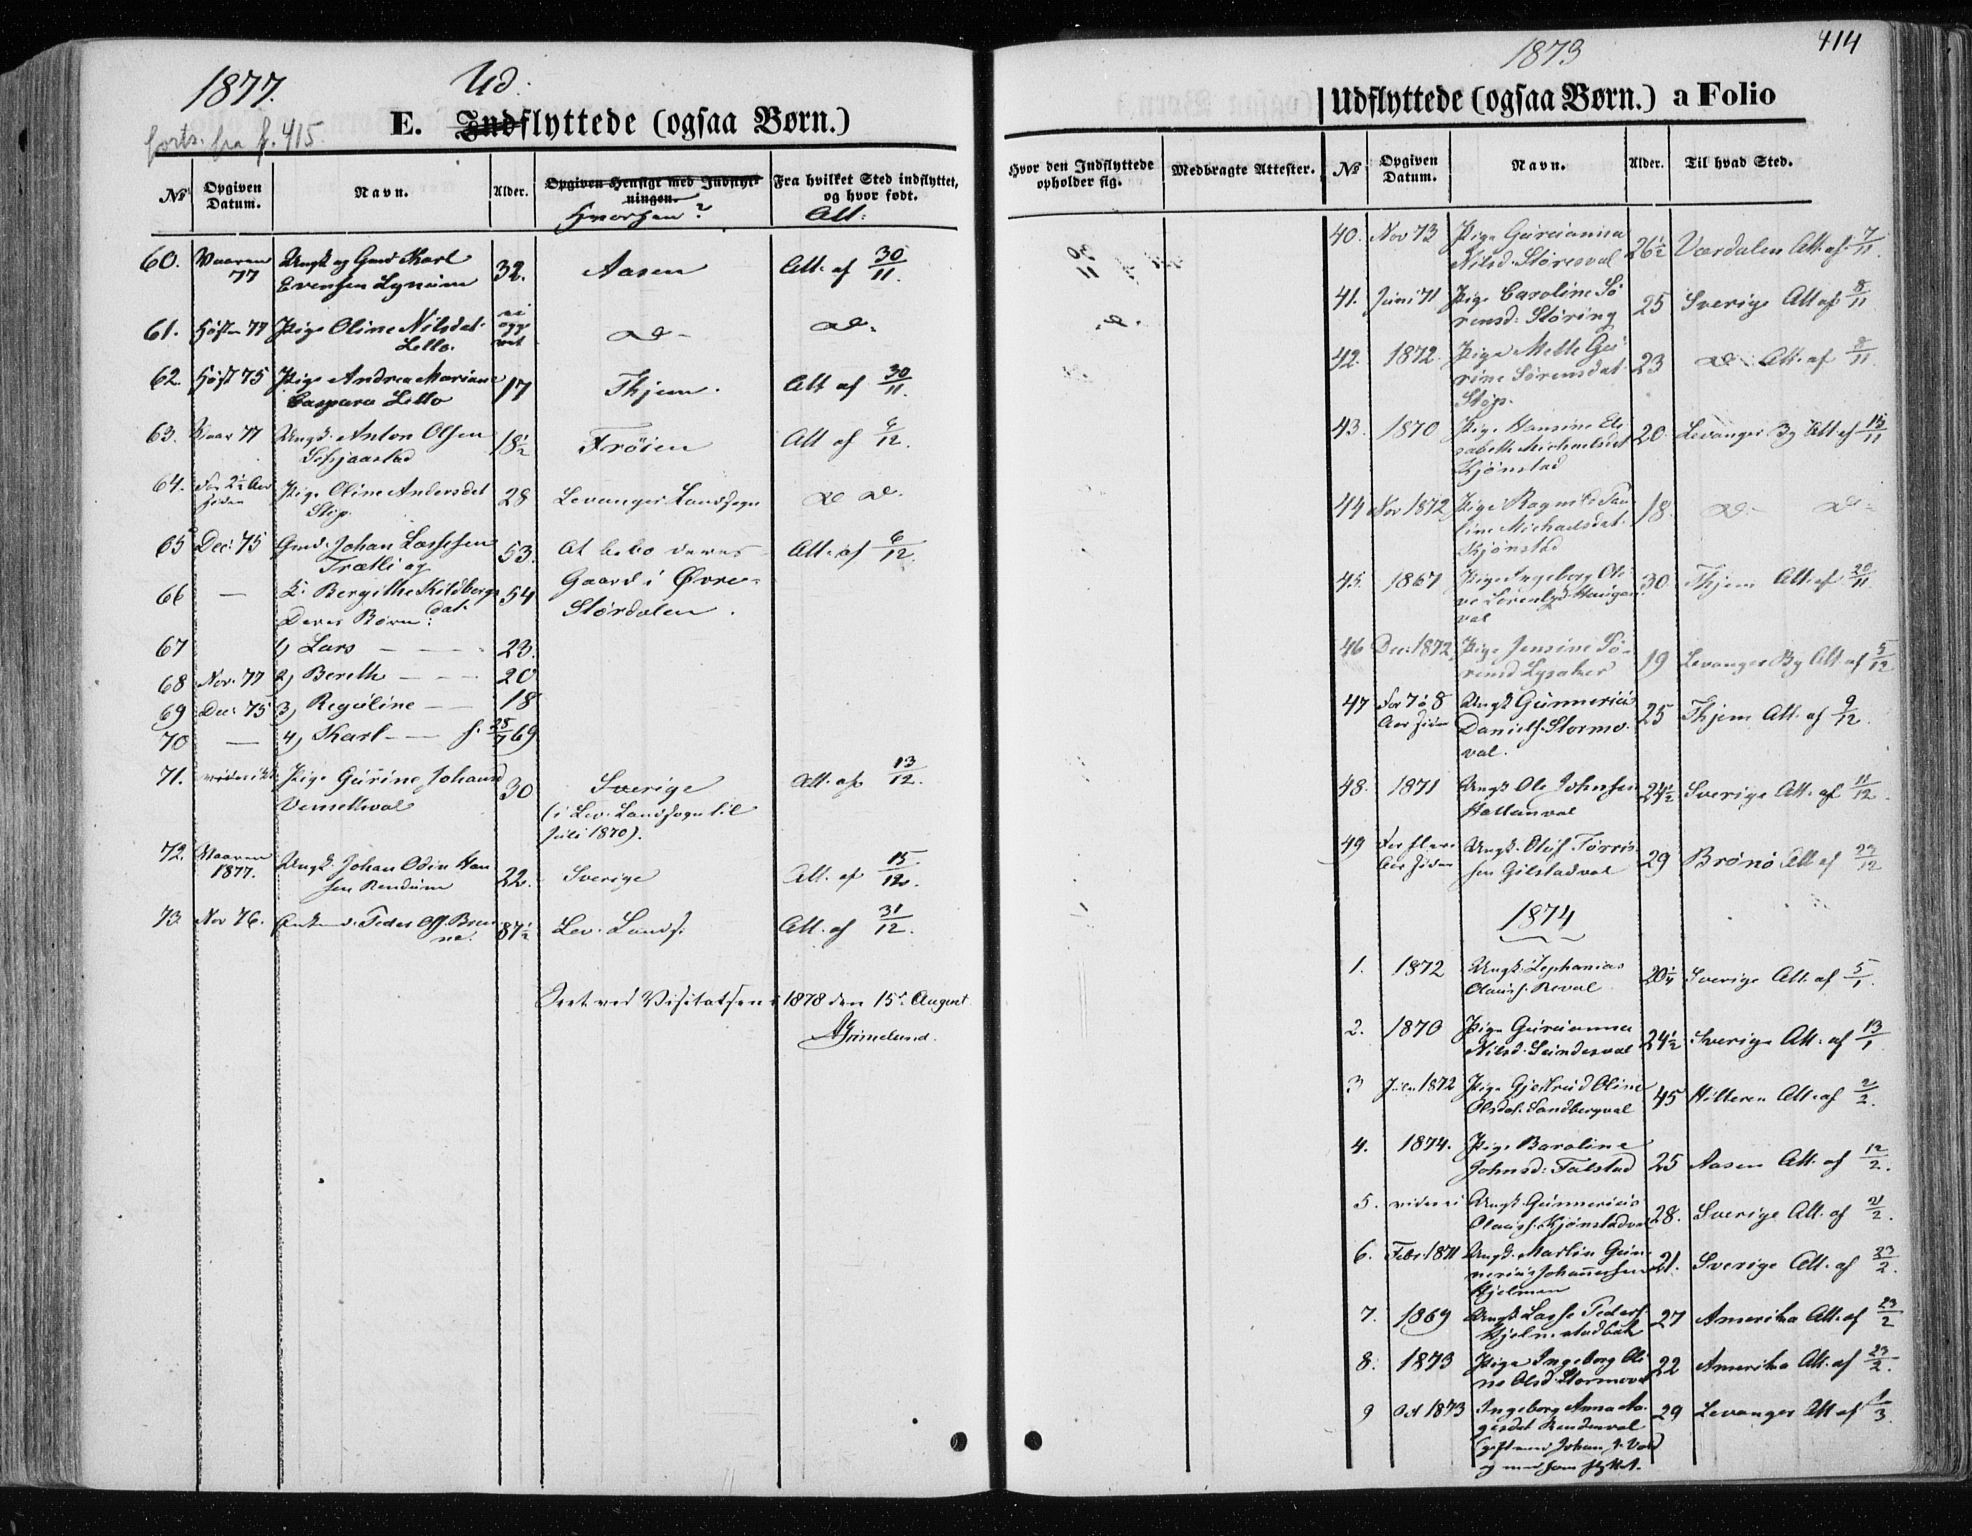 1877.
Ud.
forts. fra f. 415.
E. Indflyttede (ogsaa Børn.)
No
Opgiven Datum.
Navn.
Alder.
Opgiven Hensigt med Indflytningen.
Hvorhen?
Fra hvilket Sted indflyttet, og hvor født.
Att:
60. Vaaren 77 Ungk og Gmd Karl Evensen Lynum 32. Aasen Att. af 30/11.
61. Høsten 77 Pige Oline Nilsdat. Lello. ei opgivet do - do.
62. Høst 75 Pige Andrea Mariane Caspara Lello 17 Thjem. Att af 30/11.
63. Vaar 77 Ungk. Anton Olsen 18½ Frøien Att af 6/12.
64. For 2½ Aar siden Pige Oline Andersdat Støp. 28 Levanger Landsogn do do.
65 Dec: 75 Gmd. Johan Lassesen Trætli og 53. At bebo deres Att. af 6/12.
66 — K. Bergithe Kildborgsdat. 54 Gaard i Øvre-
Deres Børn: Størdalen.
67 1, Lars — 23.
68 Nov. 77 2, Bereth — 20
69 Dec: 75 3, Reguline — 18
70 — 4, Karl — f. 25/7 69
71. vides ikke Pige Gurine Johansd 30 Sverige Att. af 13/12.
(i Lev. Landsogn til
Juli 1870).
72. Vaaren 1877. Ungk. Johan Odin Hansen Rendum 22. Sverige Att. af 15/12.
73. Nov 76. Enkemd. Peder Ols. Brenne. 87½ Lev. Lands. Att. af 31/12.
Seet ved Visitatsen 1878 den 15de August.
AGrimelund.
1873
414
Udflyttede (ogsaa Børn.) a Folio
Hvor den Indflyttede opholder sig.
Medbragte Attester.
No
Opgiven Datum.
Navn.
Alder.
Til hvad Sted.
40. Nov 73 Pige Gurianna Nilsd. Støresval 26½ Værdalen Att. af 7/11.
41. Juni 71 Pige Caroline Sørensd: Støring 25 Sverige Att af 8/11
42. 1872. Pige Mette Gurine Sørensdat. Støp. 23 do Att. af 8/11
43. 1870 Pige Hansine Elisabeth Michaelsdat Kjønstad 20 Levanger By Att. af 15/11
44 Nov 1872 Pige Ragnhild Pauline Michaelsdat. Kjønstad 18. do - do -
45. 1867 Pige Ingeborg Olive Lorentsd. 30 Thjem Att. af 20/11
46 Dec: 1872. Pige Jensine Sørensd Lysaker 19 Levanger By Att. af 5/12
47 For 7 à 8 Aar siden Ungk Gunnerius Daniels. Stormoval. 25 Thjem Att. af 9/12.
48. 1871 Ungk Ole Johnsen Hallanval 24½ Sverige Att. af 11/12.
49 For flere Aar siden Ungk. Oluf Torrissen Gilstadval 29 Brønø Att af 23/12
1874
1. 1872 Ungk. Zephanias Olaus. Reval 20¼ Sverige Att. af 5/1.
2. 1870 Pige Gurianna Nilsd. Sundesval 24½ Sverige Att. af 13/1
3 Juli 1872 Pige Gjertrud Oline Olsdat. Sandbergval 45 Hitteren Att. af 2/2.
4. 1874. Pige Baroline Johnsd: Falstad 25 Aasen Att. af 12/2.
5. vides ei Ungk. Gunnerius Olaus. Kjønstadval 28. Sverige Att. af 21/2.
6. Febr. 1871 Ungk. Martin Gunnerius Johannesen Hjelmen 21. Sverige Att. af 23/2.
7. 1869 Ungk Lasse Peders. 27 Amerika Att. af 23/2
8. 1873 Pige Ingeborg Oline Olsd. Stormoval 22 Amerika Att. af 23/2.
9 Oct 1873 Ingeborg Anna Aagesdat Rendumval 29 Levanger Att af /3.
(gift med Johan J. Val)
og med ham flyttet.